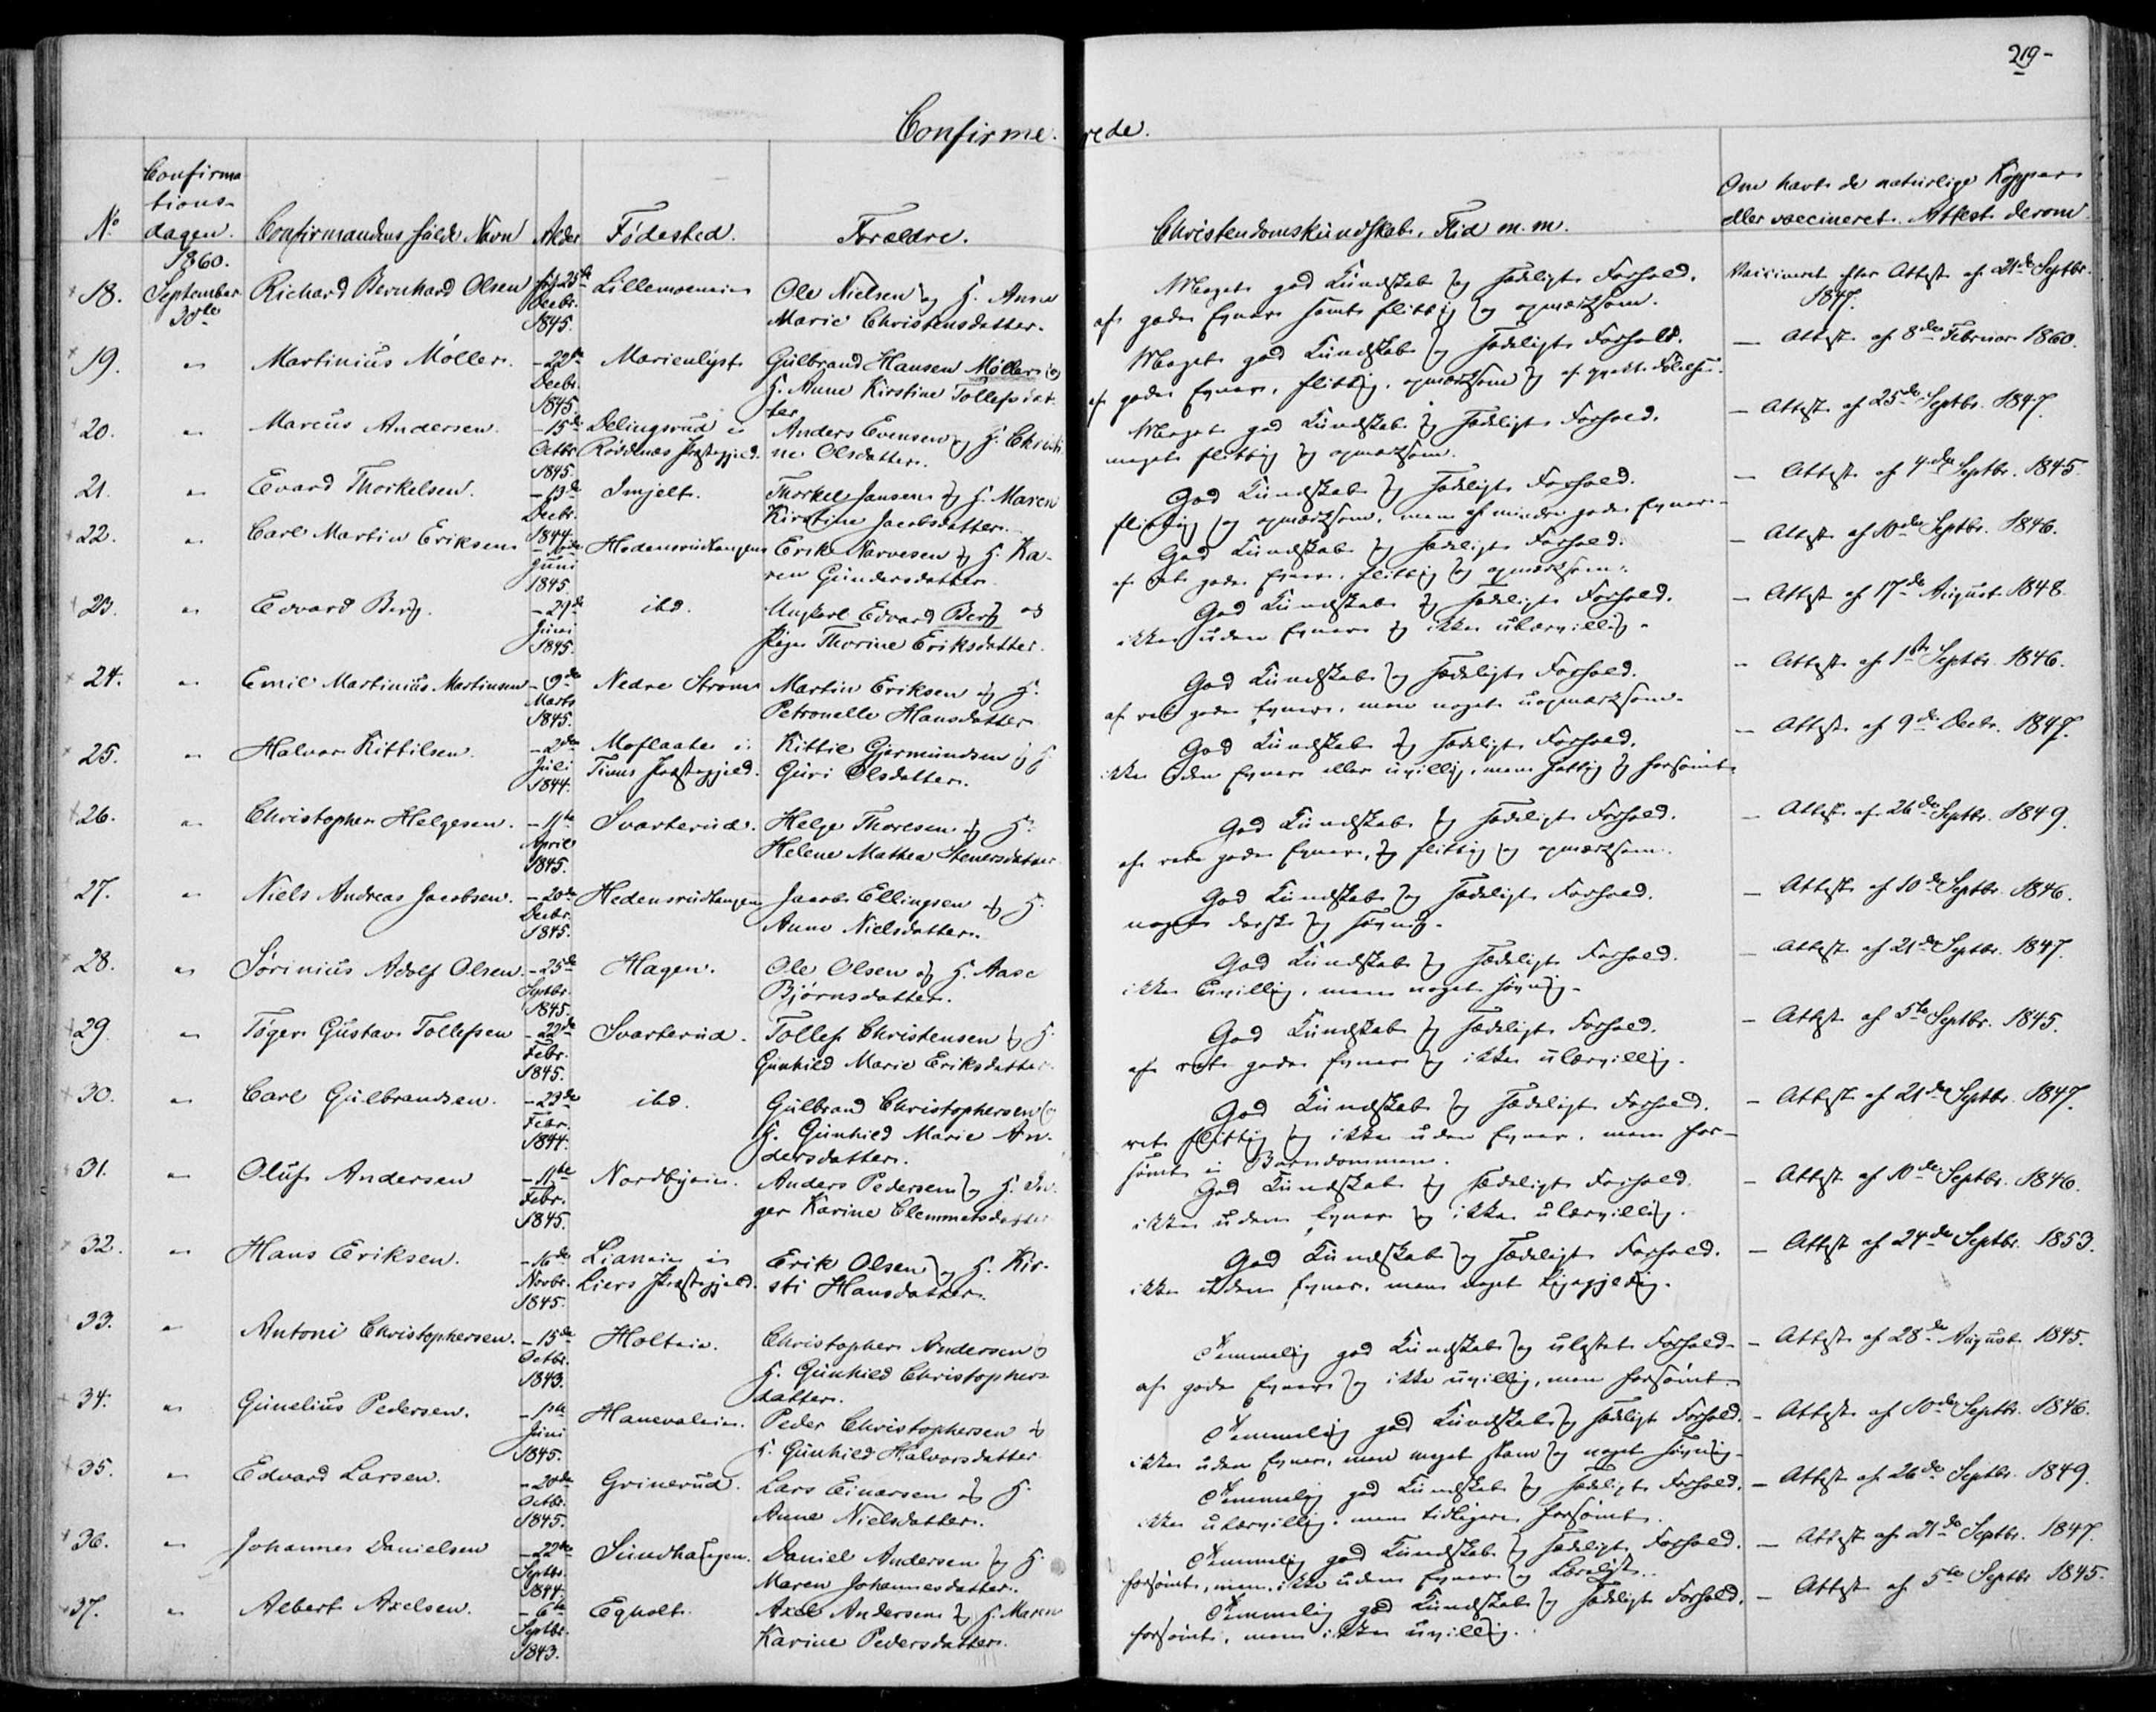 219-
Confirmerede.
No
Confirmationsdagen.
Confirmandens fulde Navn
Alder
Fødested.
Forældre.
Christendomskundskab, Flid m. m.
Om havt de naturlige Kopper
eller vaccineret. Attest derom.
1860.
18. September 30te Richard Bernhard Olsen 25de Decbr. 1845. Ole Nielsen og H. Anne
Marie Christensdatter.
Meget god Kundskab og sædeligt Forhold.
af gode Evner samt flittig og opmærksom.
Vaccineret efter Attest af 21de Septbr.
1847.
19. " Martinius Møller. - 22de Decbr. 1845. Marienlyst Gulbrand Hansen Møller og
H. Anne Kirstine Tollefsdatter
Meget god Kundskab og sædeligt Forhold.
af gode Evner, flittig, opmærksom og af
- Attest af 8de Februar 1860.
20. " Marcus Andersen. - 15de Octbr. 1845. Delingsrud i
Røddenæs Præstegjeld. Anders Evensen og H. Christine
Olsdatter.
Meget god Kundskab og sædeligt Forhold.
meget flittig og opmærksom.
- Attest af 25de Septbr. 1847.
21. " Evard Thorkelsen. - 13de Decbr. 1844. Smjelt. Thorkel Jansen og H. Maren
Kirstine Jacobsdatter.
God Kundskab og sædeligt Forhold.
flittig og opmærksom, men af mindre gode Evner.
- Attest af 4de Septbr. 1845.
22. " Carl Martin Eriksen Juni 1845. Hedensrudtangen Erik Narvesen og H. Karen
Gundersdatter.
God Kundskab og sædeligt Forhold.
af ret gode Evner, flittig og opmærksom.
- Attest af 10de Septbr. 1846.
23. " Edvard Berg. - 27de Juni 1845. ibd. Ungkarl Edvard Berg og
Pige Thorine Eriksdatter.
God Kundskab og sædeligt Forhold.
ikke uden Evner og ikke ulærvillig.
- Attest af 17de August 1848.
24. " Emil Martinius Martinsen - 9de Marts 1845. Nedre Strøm Martin Eriksen og H.
Petronelle Hansdatter
God Kundskab og sædeligt Forhold.
af ret gode Evner, men noget uopmærksom.
- Attest af 1ste Septbr. 1846.
25. " Halvor Kittilsen. - 2den Juli 1844. Moflaate i
Tinns Præstegjeld. Kittil Gjermundsen og H.
Guri Olsdatter.
God Kundskab og sædeligt Forhold.
ikke uden Evner eller uvillig, men fattig og forsømt.
- Attest af 9de Decbr. 1847.
26. " Christopher Helgesen. - 11te April 1845. Svarterud. Helge Thoresen og H.
Helene Mathea Stenersdatter
God Kundskab og sædeligt Forhold.
af ret gode Evner, og flittig og opmærksom.
- Attest af 26de Septbr. 1849.
27. " Niels Andreas Jacobsen. - 20de Decbr. 1845. Hedensrudtangen Jacob Ellingsen og H.
Anne Nielsdatter.
God Kundskab og sædeligt Forhold.
noget dorsk og søvnig.
- Attest af 10de Septbr. 1846.
28. " Sørinius Adolf Olsen. - 25de Septbr. 1845. Hagen. Ole Olsen og H. Aase
Bjørnsdatter.
God Kundskab og sædeligt Forhold.
ikke uvillig, men noget søvnig.
- Attest af 21de Septbr. 1847.
29. " Tøger Gustav Tollefsen - 22de Febr. 1845. Svarterud. Tollef Christensen og H.
Gunhild Marie Eriksdatter.
God Kundskab og sædeligt Forhold.
af ret gode Evner og ikke ulærvillig.
- Attest af 5te Septbr. 1845.
30. " Carl Gulbrandsen. - 23de Febr. 1844. ibd. Gulbrand Christophersen og
H. Gunhild Marie Andersdatter.
God Kundskab og sædeligt Forhold.
ret flittig og ikke uden Evner, men forsømt
i Barndommen.
- Attest af 21de Septbr. 1847.
31. " Oluf Andersen - 11te Febr. 1845. Nordbyeie. Anders Pedersen og H. Inger
Karine Clemmetsdatter
God Kundskab og sædeligt Forhold.
ikke uden Evner og ikke ulærvillig.
- Attest af 10de Septbr. 1846.
32. " Hans Eriksen. - 16de Novbr. 1845. Lianeie i
Liers Præstegjeld. Erik Olsen og H. Kirsti
Hansdatter.
God Kundskab og sædeligt Forhold.
ikke uden Evner, men noget ligegyldig.
- Attest af 24de Septbr. 1853.
33. " Antoni Christophersen. - 15de Octbr. 1843. Holteie. Christopher Andersen og
H. Gunhild Christophersdatter.
Temmelig god Kundskab og ulastet Forhold.
af gode Evner og ikke uvillig, men forsømt.
- Attest af 28de August 1845.
34. " Gunelius Pedersen. Juni 1845. Hanevoleie. Peder Christophersen og
H. Gunhild Halvorsdatter
Temmelig god Kundskab og sædeligt Forhold.
ikke uden Evner, men meget og noget søvnig.
- Attest af 10de Septbr. 1846.
35. " Edvard Larsen. - 20de Octbr. 1845. Grinerud. Lars Einarsen og H.
Anne Nielsdatter.
Temmelig god Kundskab og sædeligt Forhold.
ikke ulærvillig, men tidligere forsømt.
- Attest af 26de Septbr. 1849.
36. " Johannes Danielsen - 22de Septbr. 1844. Sundhaugen. Daniel Andersen og H.
Maren Johannesdatter.
Temmelig god Kundskab og sædeligt Forhold.
forsømt, men ikke uden Evner og Lærelyst.
- Attest af 21de Septbr. 1847.
37. " Albert Axelsen. - 6te Septbr. 1843. Egholt. Axel Andersen og H. Maren
Karine Pedersdatter.
Temmelig god Kundskab og sædeligt Forhold.
forsømt, men ikke uvillig.
- Attest af 5te Septbr. 1845.